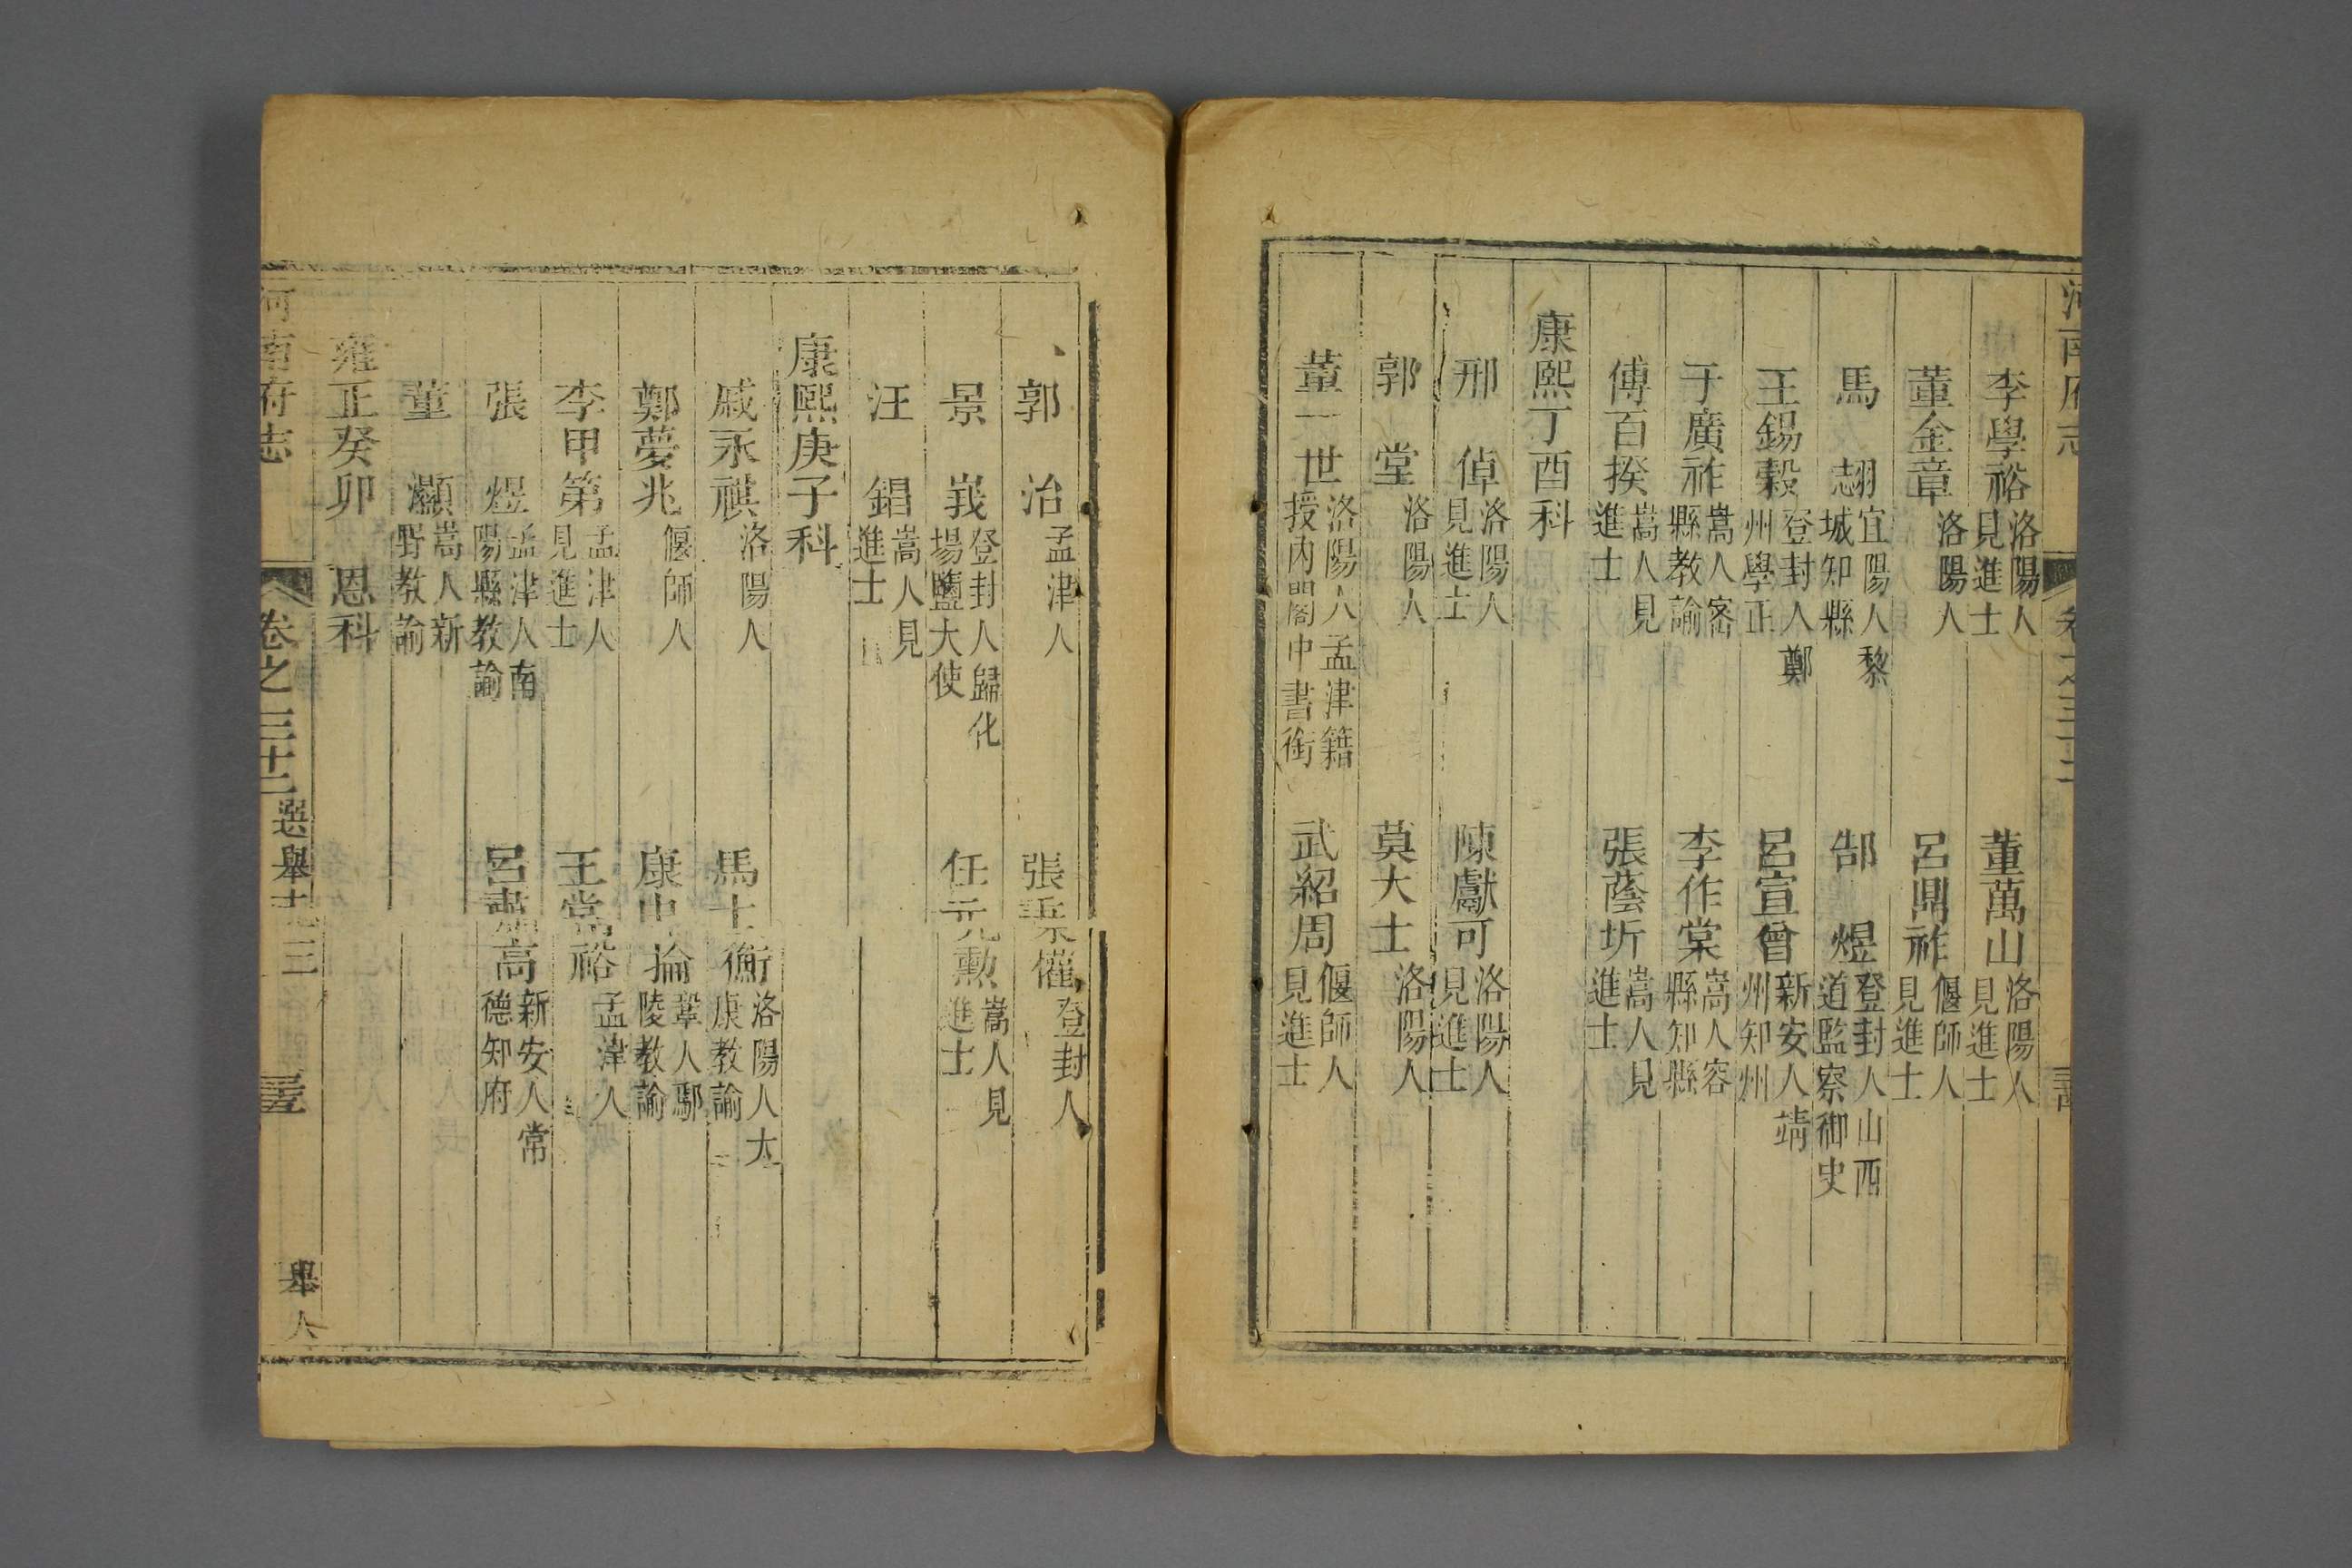 河南府志
李學裕 洛陽人見進士 董萬山 洛陽人見進士
董金章 洛陽人 呂鼎祚 偃師人見進士
馬翃 宜陽人黎城知縣 郜煜 登封人山西道監察御史
王錫穀 登封人鄭州學正 呂宣曾 新安人靖州知州
于廣祚 嵩人密縣教諭 李作棠 嵩人容縣知縣
傅百揆 嵩人見進士 張蔭圻 嵩人見進士
康熙丁酉科
邢倬 洛陽人見進士 陳獻可 洛陽人見進士
郭堂 洛陽人 莫大士 洛陽人
董一世 洛陽人孟津籍授內閣中書銜 武紹周 偃師人見進士
郭治 孟津人 張 登封人
景峩 登封人歸化場鹽大使 任元勲 嵩人見進士
汪錩 嵩人見進士
康熙庚子科
戚永祺 洛陽人 馬士衡 洛陽人太康教諭
鄭夢兆 偃師人 康中掄 鞏人鄢陵教諭
李甲第 孟津人見進士 王常裕 孟津人
張煜 孟津人南陽縣教諭 呂肅高 新安人常德知府
董灝 嵩人新野教諭
雍正癸卯恩科
河南府志 卷之三十二 選舉志三 舉人